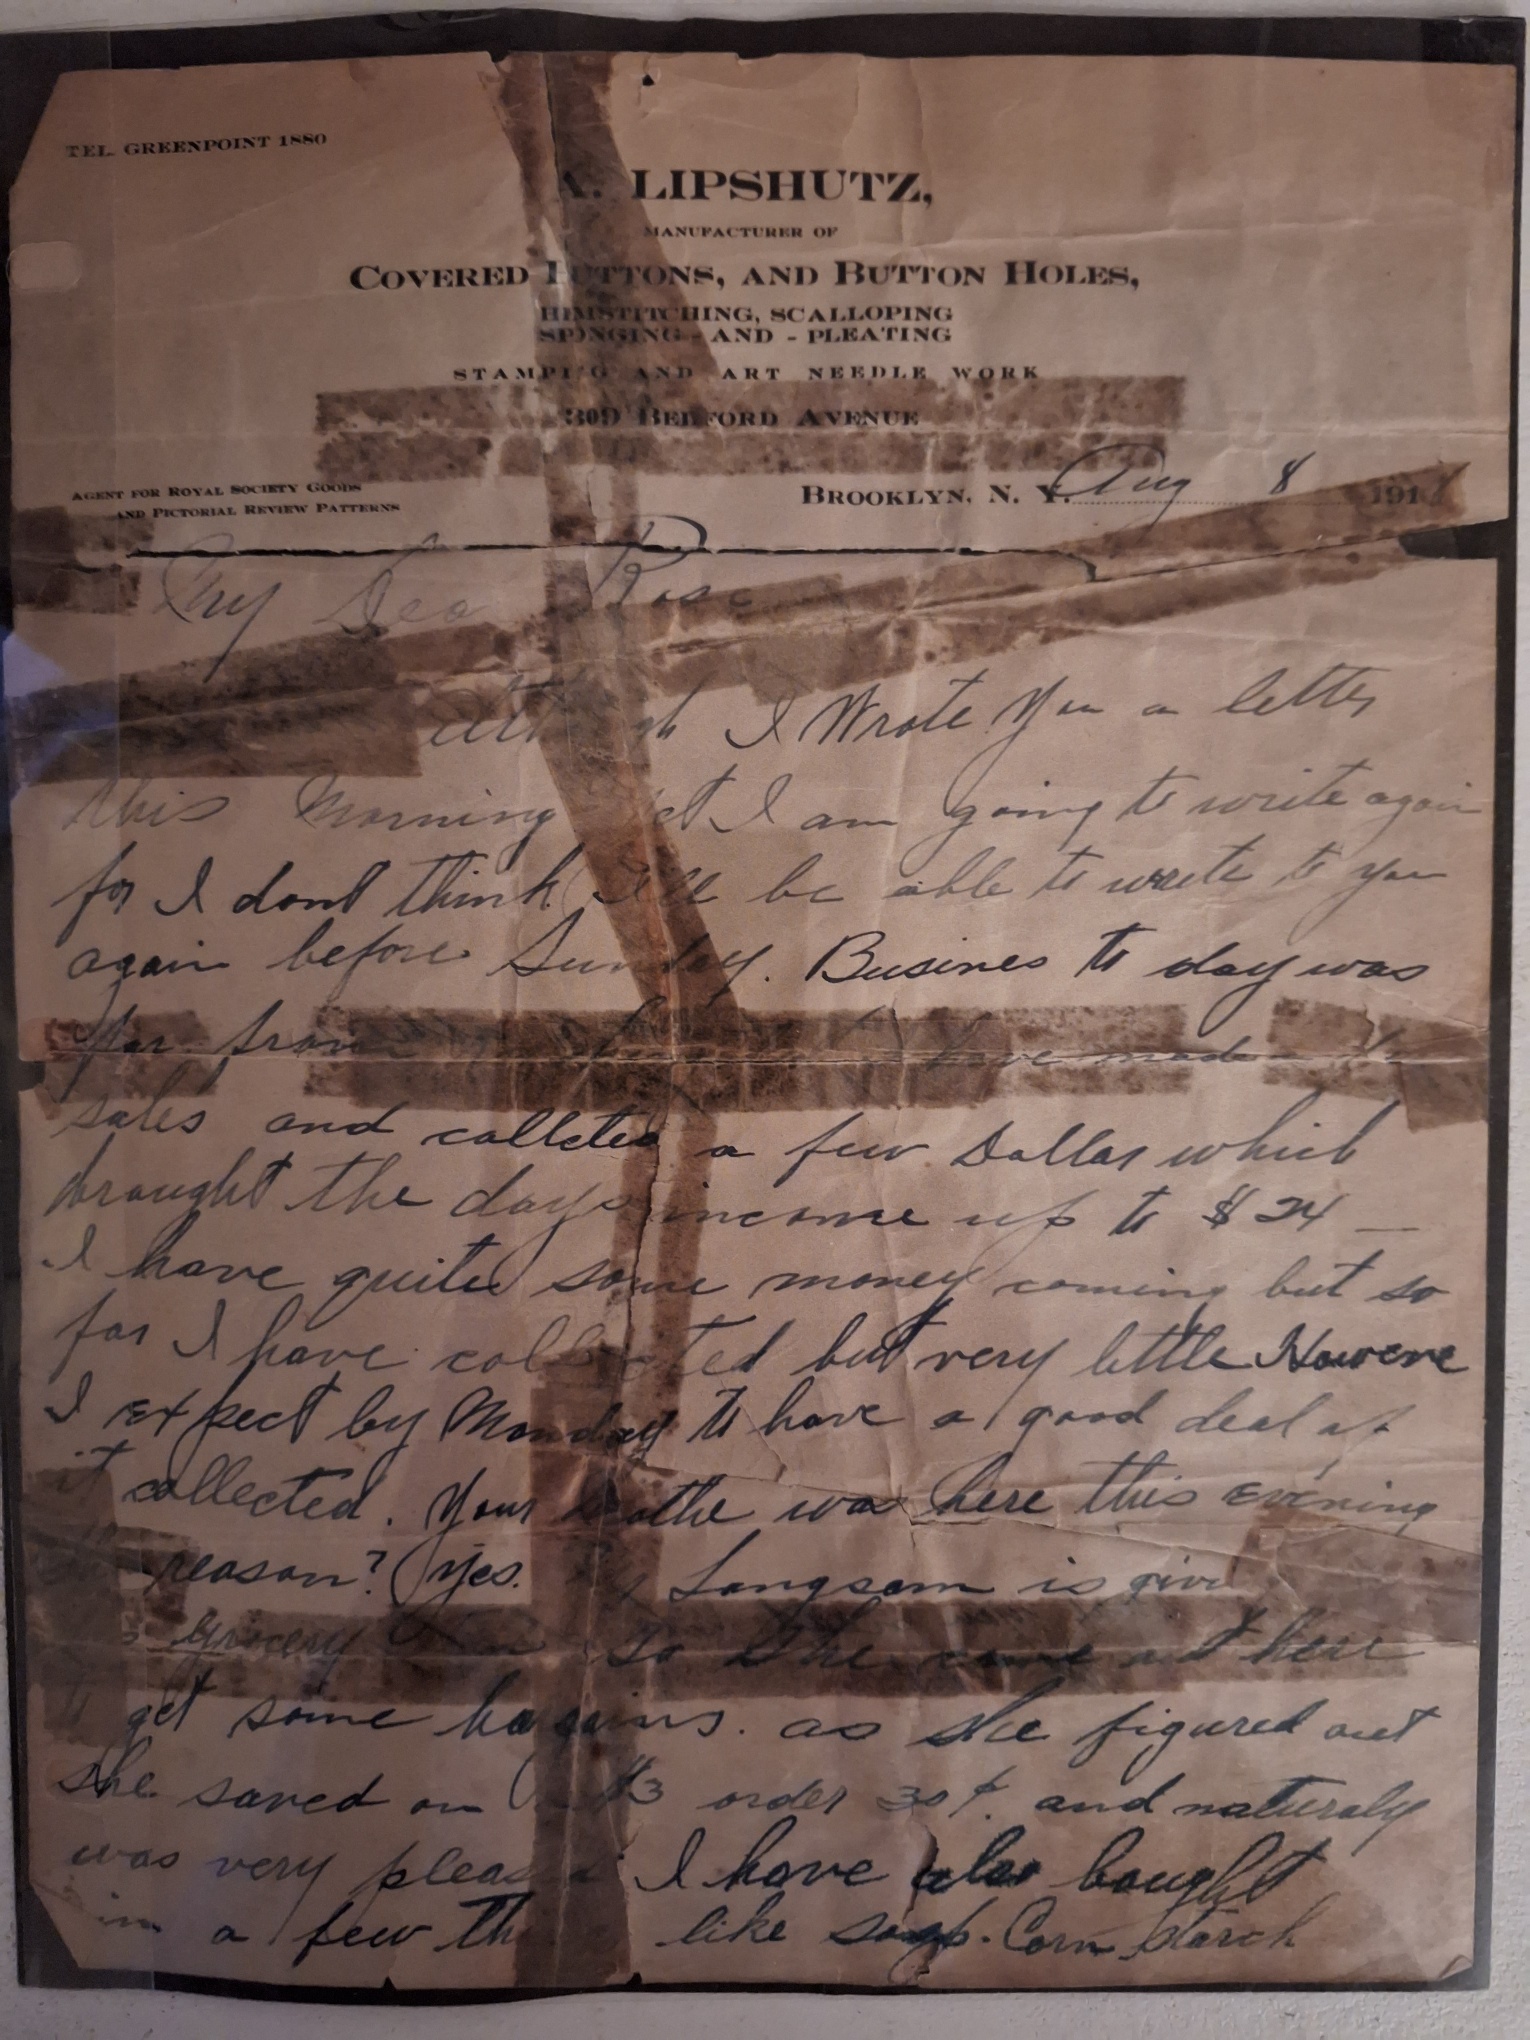 TEL. GREENPOINT 1880
A. LIPSHUTZ,
MANUFACTURER OF
COVERED BUTTONS, AND BUTTON HOLES,
HIMSTITCHING, SCALLOPING
SPONGING - AND - PLEATING
STAMPING AND ART NEEDLE WORK
309 BEDFORD AVENUE
AGENT FOR ROYAL SOCIETY GOODS
AND PICTORIAL REVIEW PATTERNS
BROOKLYN, N. Y. Aug 8 191
My Dea Rose
Although I Wrote You a letter
this Morning yet I am going to write again
for I dont think I'll be able to write to you
again before Sunday. Busines to day was
far from have made
sales and collcted a few Dollar which
brought the days income up to $24 —
I have quite some money coming but so
far I have collected but very little Howeve
I expect by Monday to have a good deal of
it collected. Your Mothe was here this evening
reason? Yes. Langsam is givi
grocery so she came out here
to get some bargains. as she figured out
she saved on a $3 order 30¢. and naturaly
was very pleased I have also bought
in a few th like soap. Corn starch